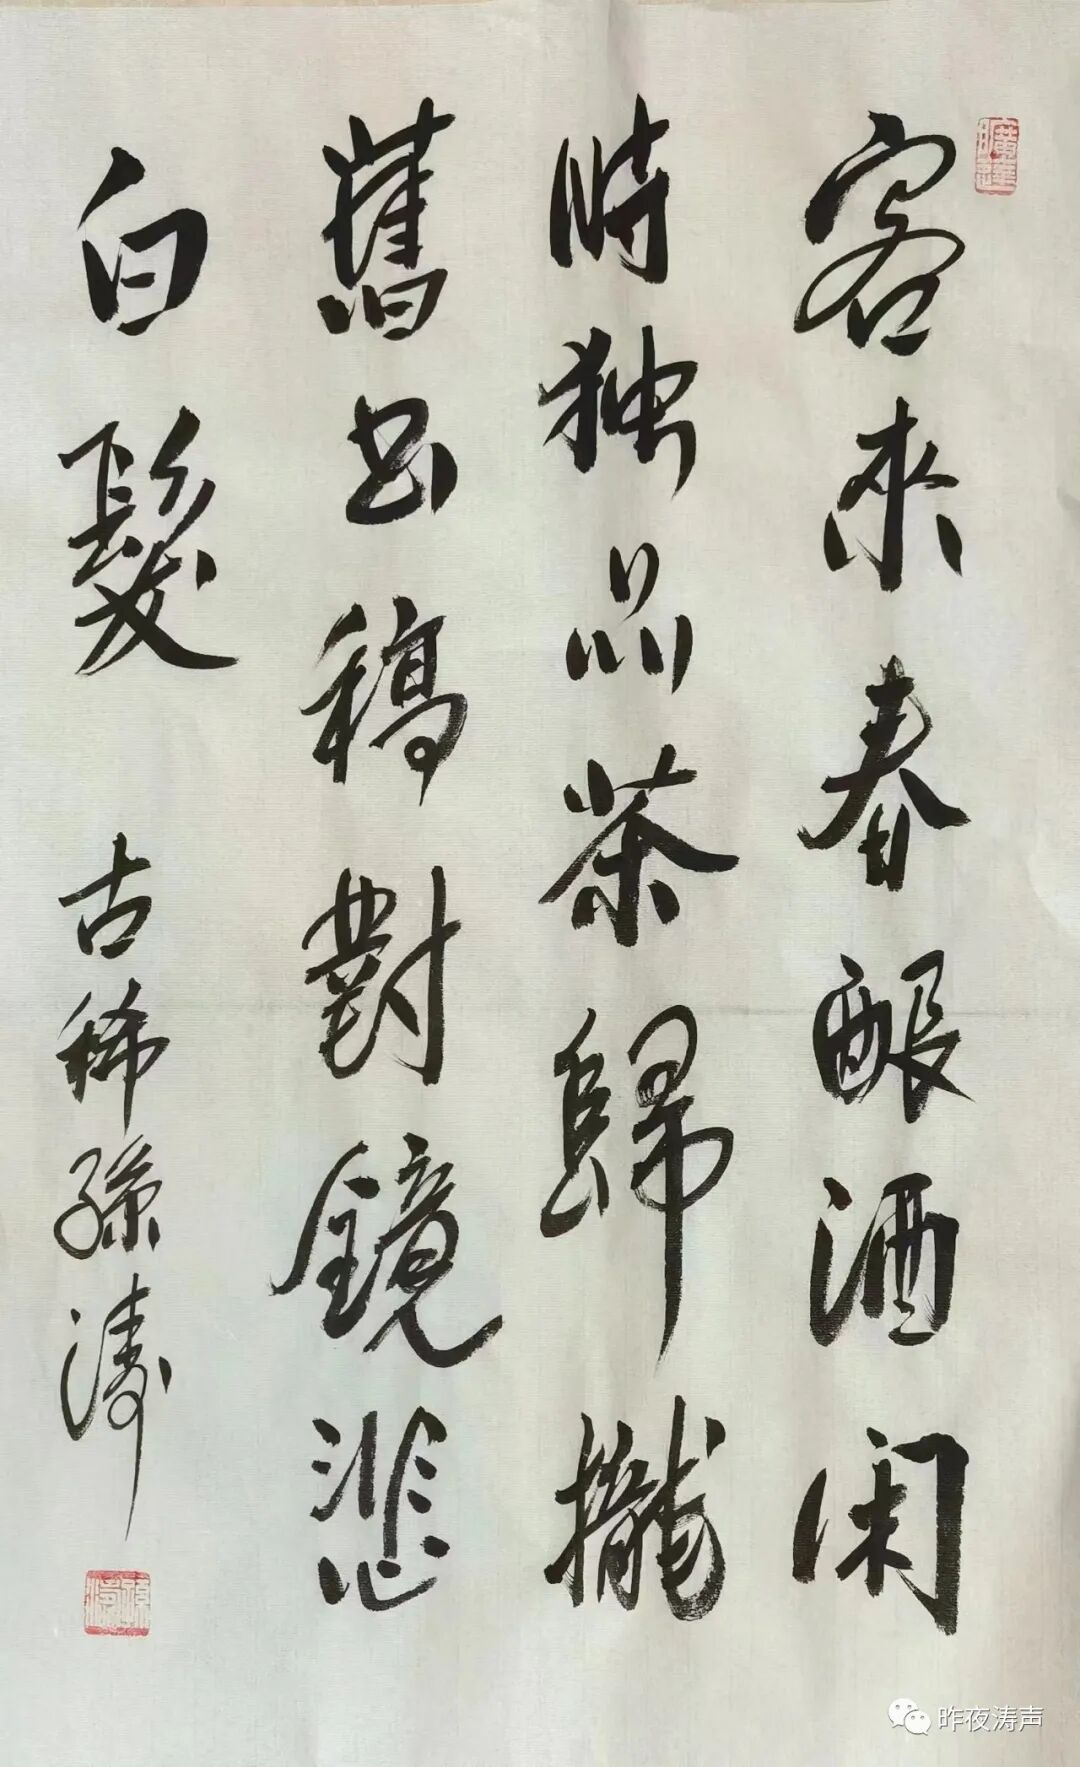 客来春酿酒闲
時独品茶歸攏
舊书稿對鏡悲
白髮
古稀孫濤
昨夜涛声